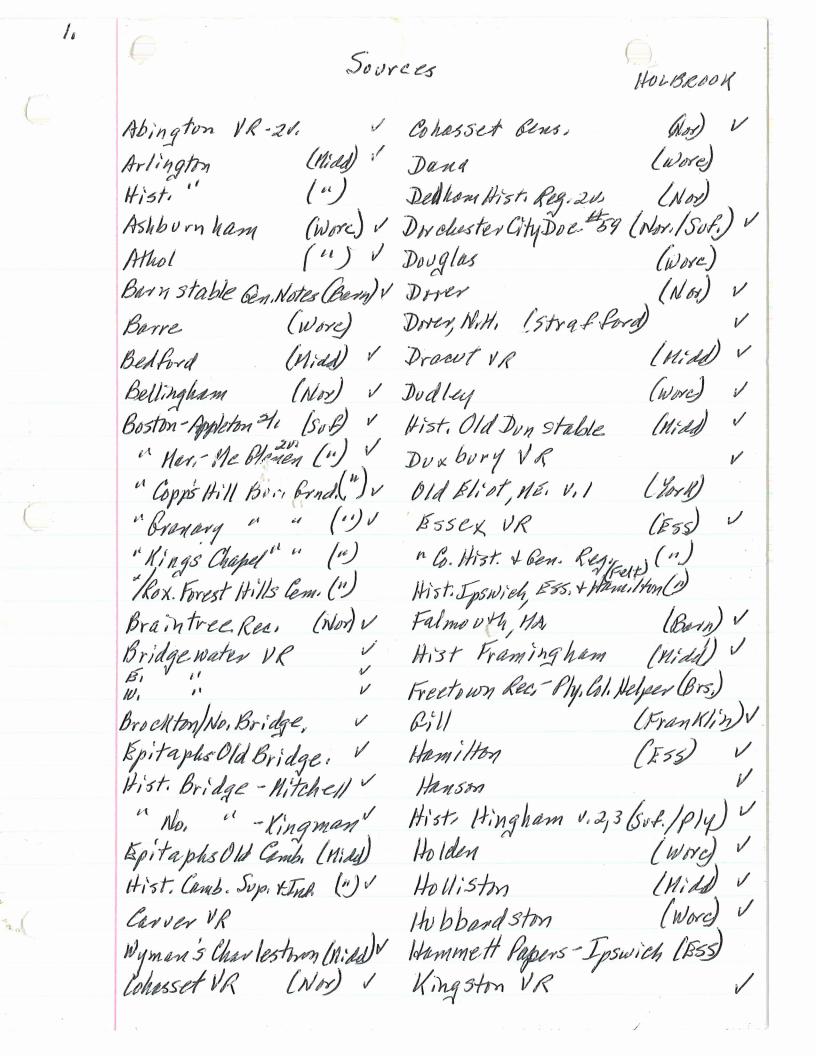 1.
Sources
HOLBROOK
Abington VR-2v. ✓
Arlington (Midd) ✓
Hist. " (")
Ashburnham (Worc) ✓
Athol (") ✓
Barnstable Gen. Notes (Barn) ✓
Barre (Worc)
Bedford (Midd) ✓
Bellingham (Nor) ✓
Boston-Appleton (Suf) ✓
" Mar.- Mc 2v. (") ✓
" Copp's Hill Bur. Grnd. (") ✓
" Granary " " (") ✓
" King's Chapel " " (")
"/Rox. Forest Hills Cem. (")
Braintree Rec. (Nor) ✓
Bridgewater VR ✓
E. " ✓
W. " ✓
Brockton/No. Bridge. ✓
Epitaphs Old Bridge. ✓
Hist. Bridge - Mitchell ✓
" No. " - Kingman ✓
Epitaphs Old Camb. (Midd)
Hist. Camb. Sup. & Ind. (") ✓
Carver VR
Wyman's Charlestown (Midd) ✓
Cohasset VR (Nor) ✓
Cohasset Gens. (Nor) ✓
Dana (Worc)
Dedham Hist. Reg. 2v. (Nor)
Dorchester City Doc. #59 (Nor./Suf.) ✓
Douglas (Worc)
Dover (Nor) ✓
Dover, N.H. (Strafford) ✓
Dracut VR (Midd) ✓
Dudley (Worc) ✓
Hist. Old Dunstable (Midd) ✓
Duxbury VR ✓
Old Eliot, ME. v.1 (York)
Essex VR (Ess) ✓
" Co. Hist. & Gen. Reg. (")
Hist. Ipswich, Ess. & Hamilton (Felt) (")
Falmouth, MA (Barn) ✓
Hist Framingham (Midd) ✓
Freetown Rec.- Ply. Col. Helper (Brs.)
Gill (Franklin) ✓
Hamilton (Ess) ✓
Hanson ✓
Hist. Hingham v. 2,3 (Suf./Ply) ✓
Holden (Worc) ✓
Holliston (Midd) ✓
Hubbardston (Worc) ✓
Hammett Papers - Ipswich (Ess)
Kingston VR ✓